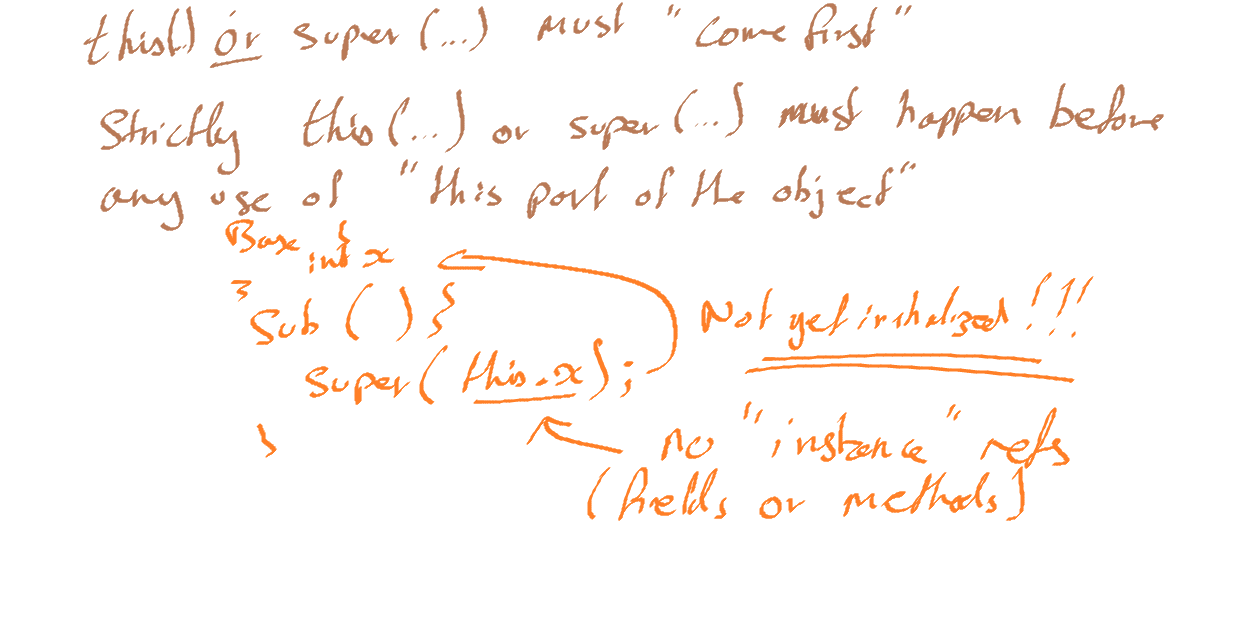 this() or super(...) must "come first"
Strictly this(...) or super(...) must happen before
any use of "this part of the object"
Base {
int x
}
Sub ( ) {
Not yet initialized!!!
super( this.x );
}
no "instance" refs
(fields or methods)